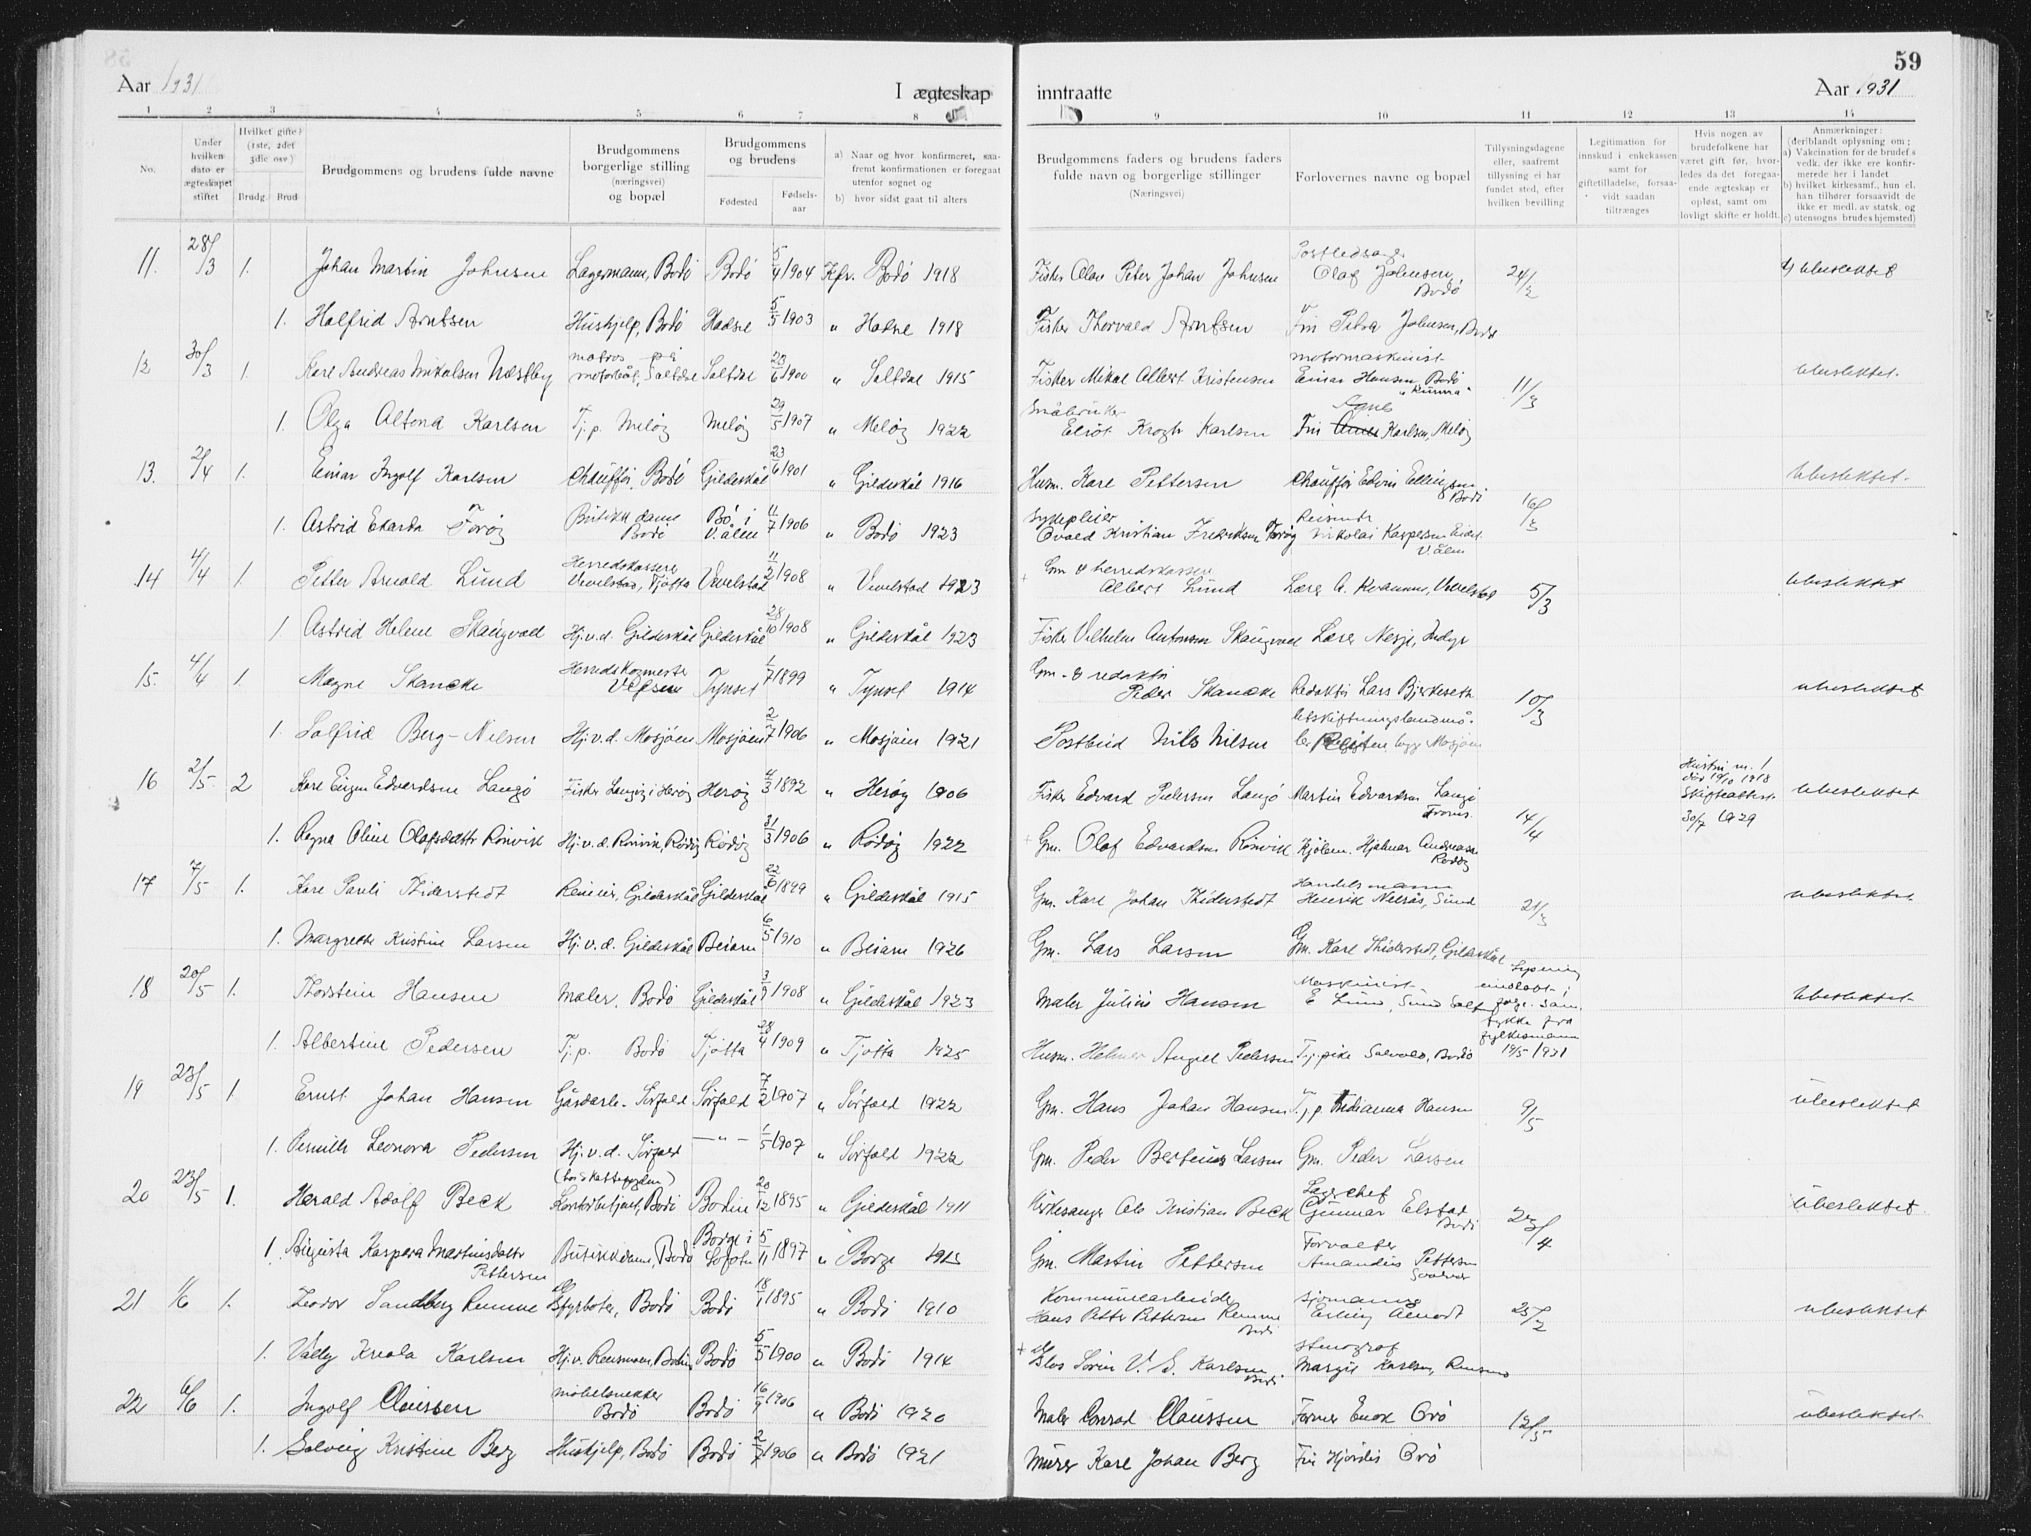 59
Aar 1931 I ægteskap inntraatte Aar 1931
1 2 3 4 5 6 7 8 9 10 11 12 13 14
No.
Under hvilken dato er ægteskapet stiftet
Hvilket gifte? (1ste, 2det 3die osv.)
Brudg. Brud
Brudgommens og brudens fulde navne
Brudgommens borgerlige stilling (næringsvei) og bopæl
Brudgommens og brudens
Fødested Fødsels-aar
a) Naar og hvor konfirmeret, saa-fremt konfirmationen er foregaat utenfor sognet og
b) hvor sidst gaat til alters
Brudgommens faders og brudens faders fulde navn og borgerlige stillinger (Næringsvei)
Forlovernes navne og bopæl
Tillysningsdagene eller, saafremt tillysning ei har fundet sted, efter hvilken bevilling
Legitimation for innskud i enkekassen samt for giftetilladelse, forsaa-vidt saadan tiltrænges
Hvis nogen av brudefolkene har været gift før, hvor-ledes da det foregaa-ende ægteskap er opløst, samt om lovligt skifte er holdt.
Anmærkninger: (deriblandt oplysning om;
a) Vakcination for de brudef s vedk. der ikke ere konfir-merede her i landet
b) hvilket kirkesamf. hun el. han tilhører forsaavidt de ikke er medl. av statsk. og
c) utensogns brudes hjemsted)
11. 28/3 1. Johan Martin Johnsen Lagermann, Bodö Bodö 5/4 1904 Kfr. Bodö 1918 Fisker Olav Peter Johan Johnsen Olaf Johnsen, Bodö 24/2 ubeslektet
1. Halfrid Arntsen Hushjelp, Bodö Hadsel 5/5 1903 " Hadsel 1918 Fisker Thorvald Arntsen Fru Petra Johnsen, Bodö
12 30/3 1. Karl Andreas Mikalsen Næstby matros på motorbåt, Saltdal Saltdal 23/6 1900 " Saltdal 1915 Fisker Mikal Albert Kristensen motormaskinist Einar Hansen, Bodö 11/3 ubeslektet.
1. Olga Altona Karlsen Tj.p. Meløy Meløy 29/5 1907 " Meløy 1922 Småbruker Eliot Krogh Karlsen Fru Agnes Karlsen, Meløy
13. 2/4 1. Einar Ingolf Karlsen Chaufför, Bodö Gildeskål 23/6 1901 " Gildeskål 1916 Husm. Karl Pettersen Chaufför Edvin Ellingsen Bodö 16/3 ubeslektet.
1. Astrid Ekarda Torøy Butikkdame Bodö Bö i V.ålen 11/7 1906 " Bodö 1923 Sykepleier Ovald Kristian Fredriksen Torøy Reisende Nikolai Kaspersen V.ålen
14 4/4 1. Petter Arnold Lund Herredskasserer Vevelstad, Tjøtta Vevelstad 11/2 1908 " Vevelstad 1923 Gm & herredskasserer Albert Lund Lærer A. Kvamme, Vevelstad 5/3 ubeslektet
1. Astrid Helene Skaugvoll Hj.v.d. Gildeskål Gildeskål 28/10 1908 " Gildeskål 1923 Fisker Vilhelm Antonsen Skaugvoll Lærer Nesje, Indyr
15. 4/4 1. Magne Skancke Herredskogmester Vefsn Tynset 1/7 1899 " Tynset 1914 Gm. & redaktör Peder Skancke Redaktör Lars Bjerkeseth 10/3 ubeslektet
1. Solfrid Berg-Nilsen Hj.v.d. Mosjöen Mosjöen 2/7 1906 " Mosjöen 1921 Postbud Nils Nilsen Utskiftningslandmå- Mosjöen
16 2/5 2 Karl Eugen Edvardsen Langö Fisker Langöy i Herøy Herøy 4/3 1892 " Herøy 1906 Fisker Edvard Pedersen Langö Martin Edvardsen Langö Troms. 14/4 Hustru nr. 1 död 19/10 1918 Skifteattest 30/7 1929 ubeslektet
1. Ragna Oline Olafsdattr Rönvik Hj.v.d. Rönvik, Rödöy Rödöy 31/3 1906 " Rödöy 1922 Gm. Olaf Edvardsen Rönvik Hjalmar Andreasen Rödöy
17 7/5 1. Karl Pauli Thiderstedt Reineier, Gildeskål Gildeskål 22/6 1899 " Gildeskål 1915 Gm. Karl Johan Thiderstedt Handelsmann Henrik Nilsås, Sund 21/3 ubeslektet.
1. Margrethe Kristine Larsen Hj.v.d. Gildeskål Beiarn 6/5 1910 " Beiarn 1926 Gm. Lars Larsen Gm. Karl Thiderstedt, Gildeskål
18 20/5 1. Thorstein Hansen Maler, Bodö Gildeskål 3/9 1908 " Gildeskål 1923 Maler Julius Hansen Maskinist E Lund, Sund Lysning undlatt i følge samtykke fra fylkesmann 19/5 1931 ubeslektet.
1. Albertine Pedersen Tj.p. Bodö Tjøtta 28/4 1909 " Tjøtta 1925 Husm. Helmer August Pedersen Tj.pike Solvold, Bodö
19 23/5 1. Ernst Johan Hansen Gårdarb. Sörfold Sörfold 7/2 1907 " Sörfold 1922 Gm. Hans Johan Hansen Tj.p. Fredianna Hansen 9/5 ubeslektet
1. Pernille Leonora Pedersen Hj.v.d. Sörfold — " — 1/5 1907 " Sörfold 1922 Gm. Peder Bertinus Larsen Gm. Peder Larsen
20 23/5 1. Harald Adolf Beck Kontorbetjent, Bodö Bodin 20/12 1895 " Gildeskål 1911 Kirkesanger Ole Kristian Beck Lagerchef Gunnar Elstad Bodö 23/4 ubeslektet.
1. Augusta Kaspara Martinsdattr Pettersen Butikkdame, Bodö Borge i Lofoten 5/11 1897 " Borge 1913 Gm. Martin Pettersen Forvalter Amandus Pettersen Svolvær
21 1/6 1. Teodor Sandberg Remme Styrboter, Bodö Bodö 18/1 1895 " Bodö 1910 Kommunearbeider Hans Petter Pettersen Remme Bodö Sjömann Erling Almodt 25/2 ubeslektet
1. Vally Knola Karlsen Hj.v. Rensmoen, Bodin Bodö 5/5 1900 " Bodö 1914 Sörin V. S. Karlsen Bodö Stenograf Margit Karlsen, Rensmo
22 6/6 1. Ingolf Claussen möbelsnekker Bodö Bodö 16/9 1906 " Bodö 1920 Maler Conrad Claussen Former Enok Orö 12/5 ubeslektet.
1. Solveig Kristine Berg Hushjelp, Bodö Bodö 2/7 1906 " Bodö 1921 Murer Karl Johan Berg Fru Hjördis Orö